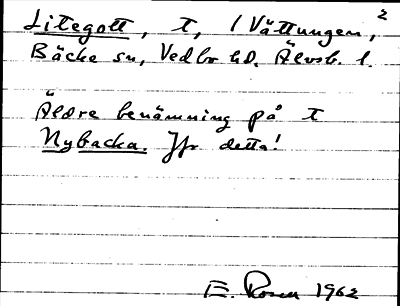 Litegott, t, / Vättungen,²
Bäcke sn, Vedbo hd. Älvsb. l.
Äldre benämning på t
Nybacka. Jfr detta!
E. Rosen 1962